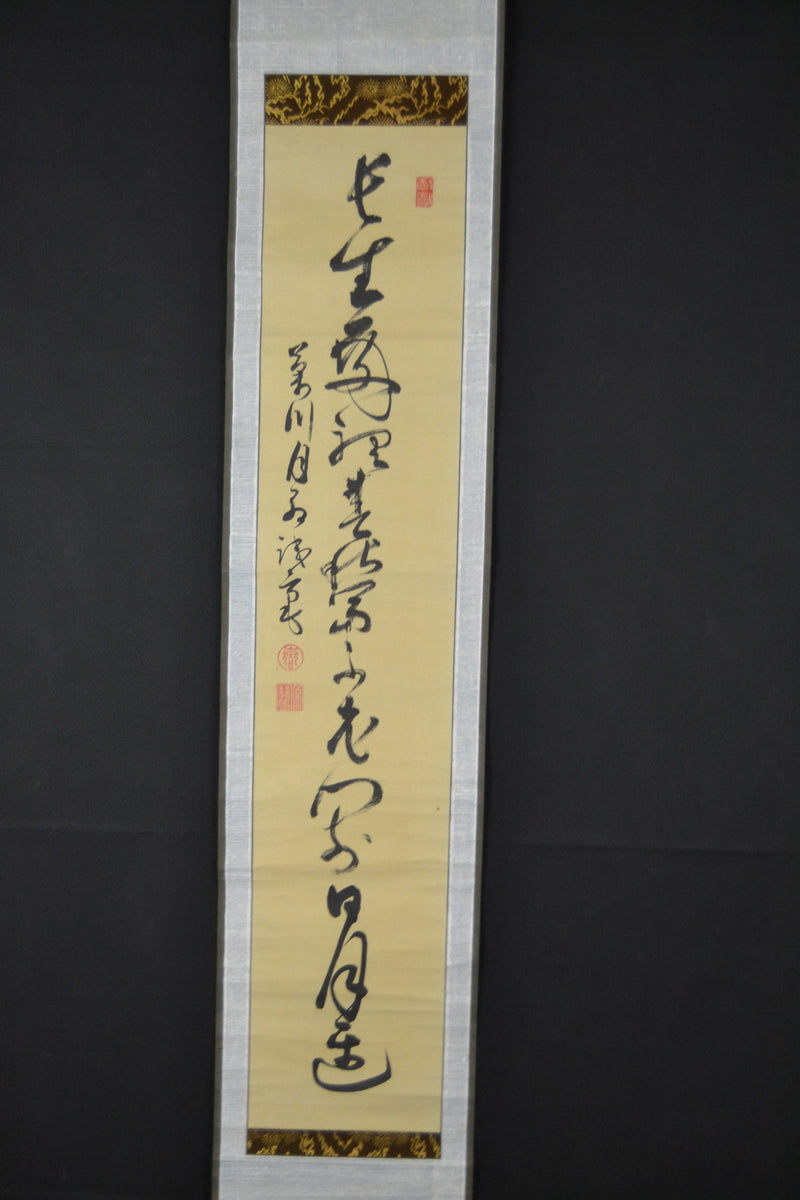 長生殿裡春秋富不老門前日月遅
川月